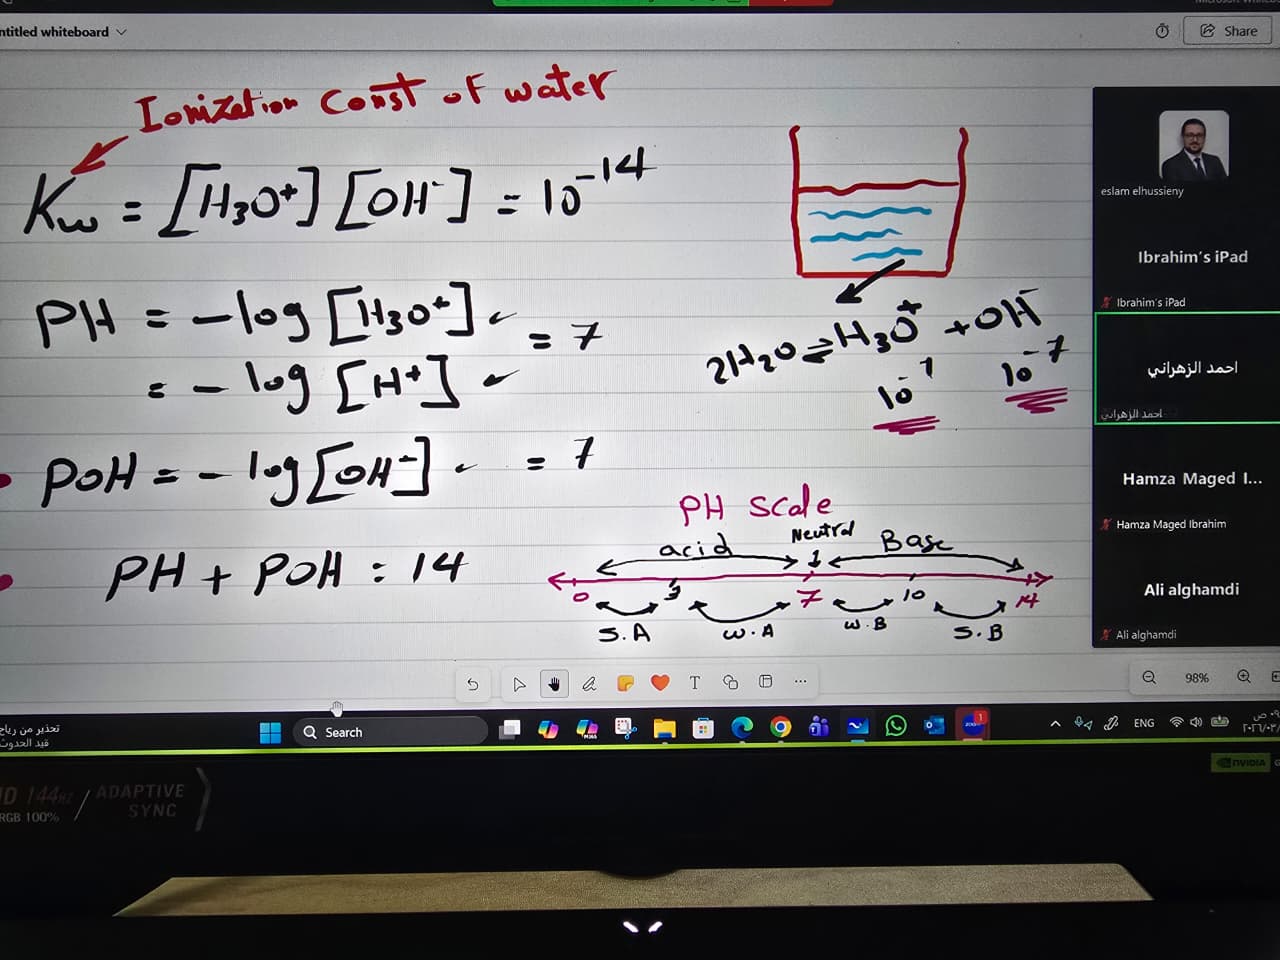 ntitled whiteboard
Share
Ionization Const of water
Kw = [H3O+] [OH-] = 10-14
PH = -log [H3O+] = 7
= - log [H+]
POH = - log [OH-] = 7
PH + POH = 14
2H2O ⇌ H3O+ + OH-
10-7 10-7
PH Scale
Neutral
acid Base
0 3 7 10 14
S.A W.A W.B S.B
eslam elhussieny
Ibrahim's iPad
Ibrahim's iPad
احمد الزهراني
احمد الزهراني
Hamza Maged I...
Hamza Maged Ibrahim
Ali alghamdi
Ali alghamdi
T
98%
تحذير من رياح
قيد الحدوث
Search
ENG
NVIDIA
144Hz ADAPTIVE
SYNC
RGB 100%